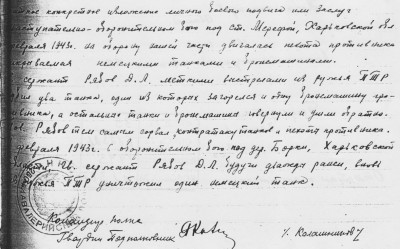 конкретное изложение личного боевого подвига или заслуг
наступательно-оборонительном бою под ст. Шередой, Харьковской обл
февраля 1943г. на оборону нашей части двигалась пехота противника
немецкими танками и бронемашинами.
сержант Рязов Д.Л. меткими выстрелами из ружья ПТР
два танка, один из которых загорелся и одну бронемашину про-
тивника, а остальные танки и бронемашина свернули и ушли обратно.
Рязов тем самым сорвал контратаку танков и пехоты противника.
февраля 1943г. в оборонительном бою под дер. Борки, Харьковской
сержант Рязов Д.Л. будучи дважды ранен, вновь
ружья ПТР уничтожил один немецкий танк.
Командир полка
Гвардии Подполковник